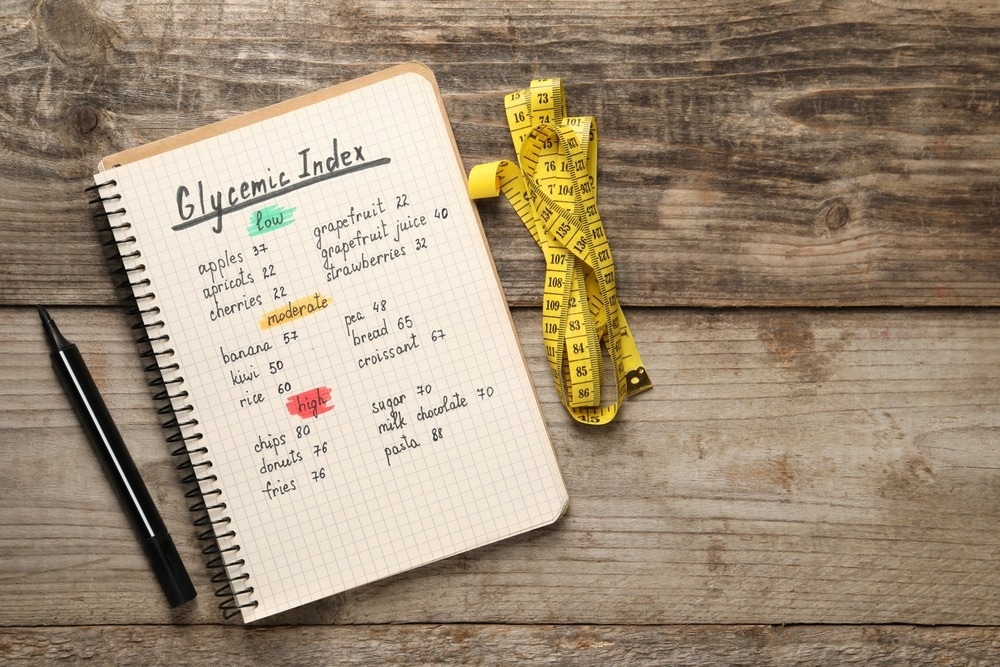 Glycemic Index
low
apples 37
apricots 22
cherries 22
grapefruit 22
grapefruit juice 40
strawberries 32
moderate
banana 57
kiwi 50
rice 60
pea 48
bread 65
croissant 67
high
chips 80
donuts 76
fries 76
sugar 70
milk chocolate 70
pasta 88
15
16
73
74
101
76
104
135
136
107
108
109
110
83
84
85
86